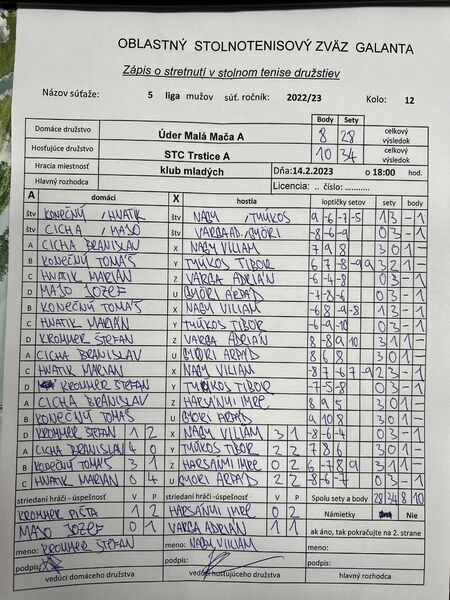 OBLASTNÝ STOLNOTENISOVÝ ZVÄZ GALANTA
Zápis o stretnutí v stolnom tenise družstiev
Názov súťaže: 5 liga mužov súť. ročník: 2022/23 Kolo: 12
Body Sety
Domáce družstvo Úder Malá Mača A 8 28 celkový výsledok
Hosťujúce družstvo STC Trstice A 10 34 celkový výsledok
Hracia miestnosť klub mladých Dňa: 14.2.2023 o 18:00 hod.
Hlavný rozhodca Licencia: .. číslo: ..........
A domáci X hostia loptičky setov sety body
štv KONEČNÝ / HNATIK štv NAGY / TMÚKOS 9 -6 -7 -5 1 3 - 1
štv CICHA / MASO štv VARGA AD. GYÖRI -8 -6 -9 0 3 - 1
A CICHA BRANISLAV X NAGY VILIAM 7 9 8 3 0 1 -
B KONEČNÝ TOMÁŠ Y TMÚKOS TIBOR 6 7 -8 -9 9 3 2 1 -
C HNATIK MARIÁN Z VARGA ADRIÁN -6 -4 -8 0 3 - 1
D MASO JOZEF U GYÖRI ARPÁD -7 -8 -6 0 3 - 1
B KONEČNÝ TOMÁŠ X NAGY VILIAM -6 8 -9 -8 1 3 - 1
C HNATIK MARIÁN Y TMÚKOS TIBOR -6 -9 -10 0 3 - 1
D KROMHER ŠTEFAN Z VARGA ADRIÁN 8 -8 9 10 3 1 1 -
A CICHA BRANISLAV U GYÖRI ARPÁD 8 6 8 3 0 1 -
C HNATIK MARIÁN X NAGY VILIAM -8 7 -6 7 -9 2 3 - 1
D KROMHER ŠTEFAN Y TMÚKOS TIBOR -7 -5 -8 0 3 - 1
A CICHA BRANISLAV Z HARSÁNYI IMRE 8 9 5 3 0 1 -
B KONEČNÝ TOMÁŠ U GYÖRI ARPÁD 9 10 8 3 0 1 -
D KROMHER ŠTEFAN 1 2 X NAGY VILIAM 3 1 -8 -6 -4 0 3 - 1
A CICHA BRANISLAV 4 0 Y TMÚKOS TIBOR 2 2 7 8 6 3 0 1 -
B KONEČNÝ TOMÁŠ 3 1 Z HARSÁNYI IMRE 0 2 6 -7 8 9 3 1 1 -
C HNATIK MARIÁN 0 4 U GYÖRI ARPÁD 2 2 -8 -6 -6 0 3 - 1
striedaní hráči - úspešnosť V P striedaní hráči - úspešnosť V P Spolu sety a body 28 34 8 10
1 2 HARSÁNYI IMRE 0 2 Námietky Nie
MASO JOZEF 0 1 VARGA ADRIÁN 1 1 ak áno, tak pokračujte na 2. strane
meno: KROMHER ŠTEFAN meno: NAGY VILIAM
podpis: podpis:
vedúci domáceho družstva vedúci hosťujúceho družstva hlavný rozhodca